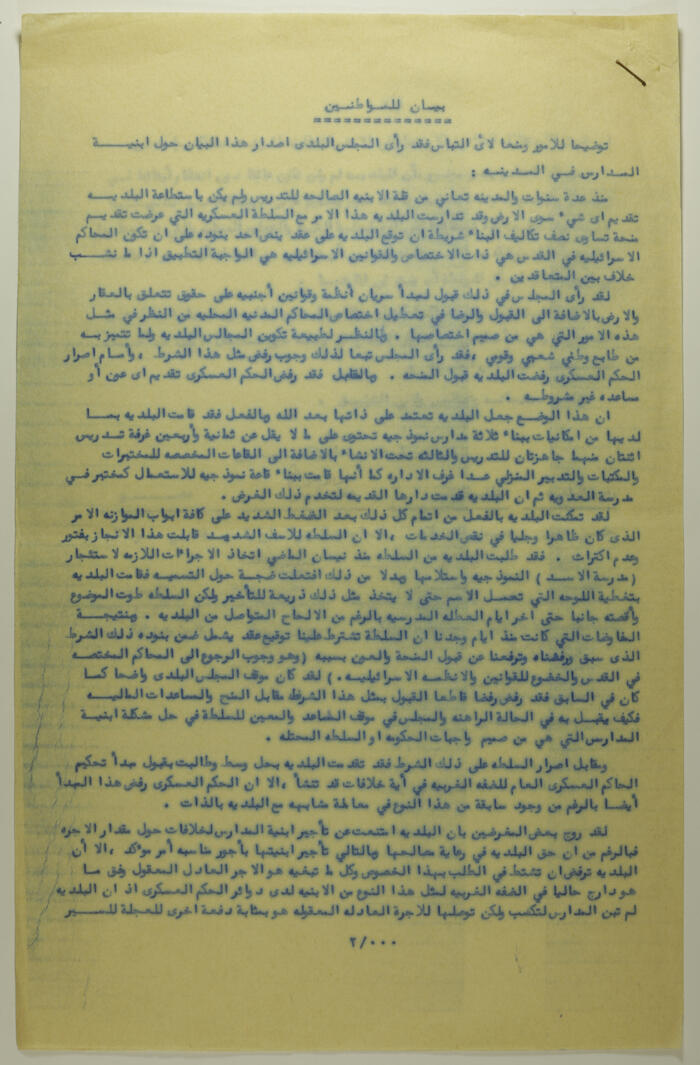 بيـان للمـواطنـين
توضيحا للامور ومنعا لائ التباس فقد رأى المجلس البلدى اصدار هذا البيان حول ابنيـــة
المدارس في المدينـه :
منذ عدة سنوات والمدينه تعاني من قلة الابنيه الصالحه للتدريس ولم يكن باستطاعة البلديــه
تقديم اى شيء سوى الارض وقد تدارست البلديه هذا الامر مع السلطة العسكريه التي عرضت تقديـم
منحة تساوى نصف تكاليف البناء شريطة ان توقع البلديه على عقد ينص احد بنوده على ان تكون المحاكم
الاسرائيليه في القدس هي ذات الاختصاص والقوانين الاسرائيليه هي الواجبة التطبيق اذا ما نشــب
خلاف بين المتعاقدين .
لقد رأى المجلس في ذلك قبول لمبدأ سريان أنظمة وقوانين أجنبيه على حقوق تتعلق بالعقار
والارض بالاضافة الى القبول والرضا في تعطيل اختصاص المحاكم المدنيه المحليه من النظر في مثـل
هذه الامور التي هي من صميم اختصاصها . وبالنظر لطبيعة تكوين المجالس البلديه ولما تتميز بـه
من طابع وطني شعبي وقومي ،فقد رأى المجلس تبعا لذلك وجوب رفض مثل هذا الشرط ،وأمام اصرار
الحكم العسكرى رفضت البلديه قبول المنحه . وبالمقابل فقد رفض الحكم العسكرى تقديم اى عون أو
مساعده غير مشروطه .
ان هذا الوضع جعل البلديه تعتمد على ذاتها بعد الله وبالفعل فقد قامت البلديه بمــا
لديها من امكانيات ببناء ثلاثة مدارس نموذجيه تحتوى على ما لا يقل عن ثمانية وأربعين غرفة تدريس
اثنتان منها جاهزتان للتدريس والثالثه تحت الانشاء بالاضافة الى القاعات المخصصه للمختبرات
والمكتبات والتدبير المنزلي عدا غرف الاداره كما أنها قامت ببناء قاعة نموذجيه للاستعمال كمختبر فـي
مدرسة العدويه ثم ان البلديه قدمت دارها القديمه لتخدم ذلك الغرض .
لقد تمكنت البلديه بالفعل من اتمام كل ذلك بعد الضغط الشديد على كافة ابواب الموازنه الامر
الذى كان ظاهرا وجليا في نقص الخدمات ،الا ان السلطه للاسف الشديد قابلت هذا الانجاز بفتور
وعدم اكتراث . فقد طلبت البلديه من السلطه منذ نيسان الماضي اتخاذ الاجراءات اللازمه لاستئجار
( مدرسة الاسد ) النموذجيه واستلامها وبدلا من ذلك افتعلت ضجة حول التسميه فقامت البلديه
بتغطية اللوحه التي تحمل الاسم حتى لا يتخذ مثل ذلك ذريعة للتأخير ولكن السلطه طوت الموضوع
وأقصته جانبا حتى اخر ايام العطله المدرسيه بالرغم من الالحاح المتواصل من البلديه . ونتيجـة
المفاوضات التي كانت منذ ايام وجدنا ان السلطة تشترط علينا توقيع عقد يشمل ضمن بنوده ذلك الشرط
الذى سبق ورفضناه وترفعنا عن قبول المنحة والعون بسببه ( وهو وجوب الرجوع الى المحاكم المختصه
في القدس والخضوع للقوانين والانظمه الاسرائيليـه .) لقد كان موقف المجلس البلدى واضحا كمـا
كان في السابق فقد رفض رفضا قاطعا القبول بمثل هذا الشرط مقابل المنح والمساعدات الماليـه
فكيف يقبـل به في الحالة الراهنه والمجلس في موقف المساعد والمعين للسلطة في حل مشكلة ابنيـة
المدارس التي هي من صميم واجبات الحكومه او السلطه المحتله .
ومقابل اصرار السلطه على ذلك الشرط فقد تقدمت البلديه بحل وسط وطالبت بقبول مبدأ تحكيم
الحاكم العسكرى العام للضفه الغربيه في أية خلافات قد تنشأ ،الا ان الحكم العسكرى رفض هذا المبدأ
أيضا بالرغم من وجود سابقة من هذا النوع في معاملة مشابهه مع البلديه بالذات .
لقد روج بعض المغرضين بان البلديه امتنعت عن تأجير ابنية المدارس لخلافات حول مقدار الاجره
فبالرغم من ان حق البلديه في رعاية مصالحها وبالتالي تأجير ابنيتها بأجور مناسبه أمر مؤكد ،الا أن
البلديه ترفض ان تشتط في الطلب بهذا الخصوص وكل ما تبغيه هو الاجر العادل المعقول وفق مـا
هو دارج حاليا في الضفه الغربيه لمثل هذا النوع من الابنيه لدى دوائر الحكم العسكرى اذ ان البلديه
لم تبن المدارس لتكسب ولكن توصلها للاجرة العادله المعقوله هو بمثابة دفعة اخرى للعجلة للسـير
٢/٠٠٠